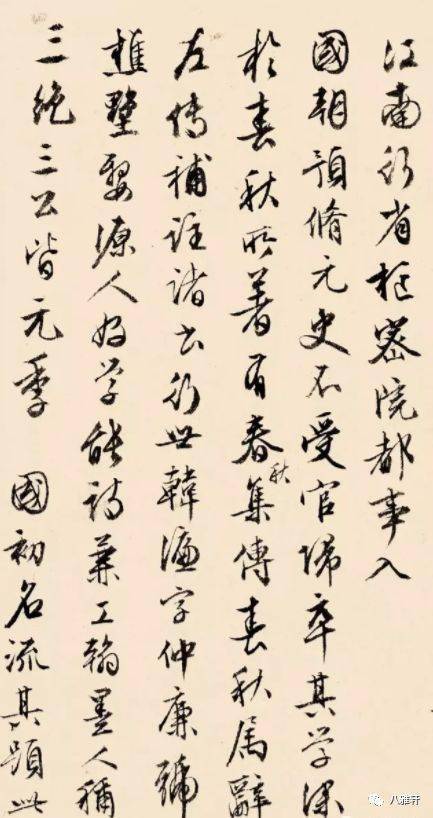 江南行省枢密院都事入
國朝預脩元史不受官歸卒其学深
於春秋所著有春秋集傳春秋属辭
左傳補註諸書行世韓濂字仲廉號
樵墅婺源人好学能詩兼工翰墨人稱
三絶三公皆元季 國初名流其題此
八雅轩